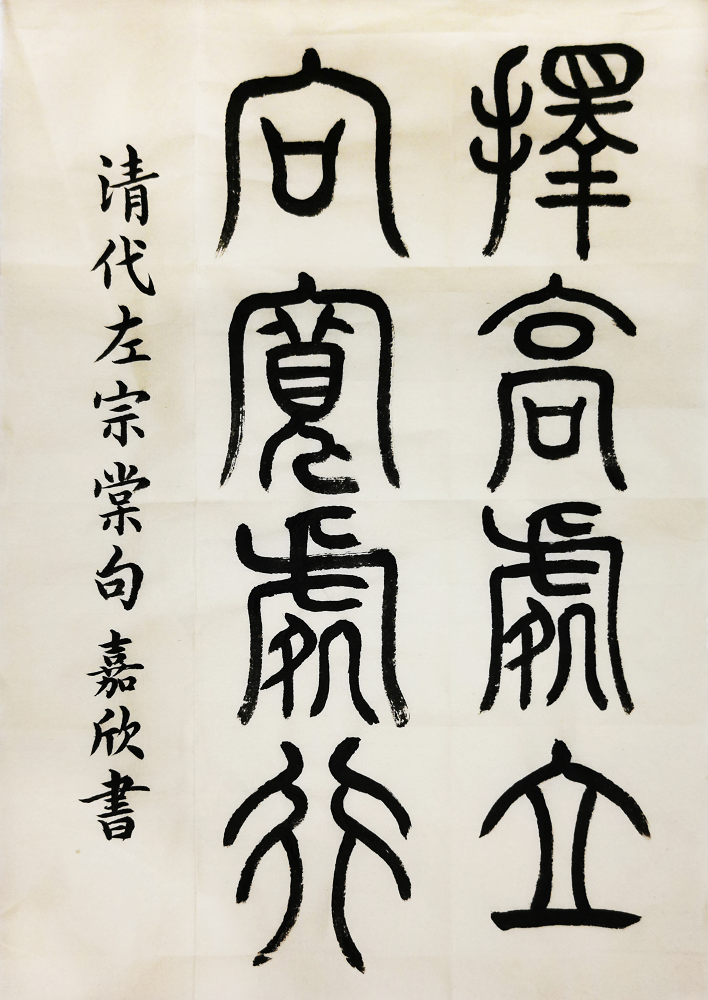 擇高處立
向寬處行
清代左宗棠句嘉欣書